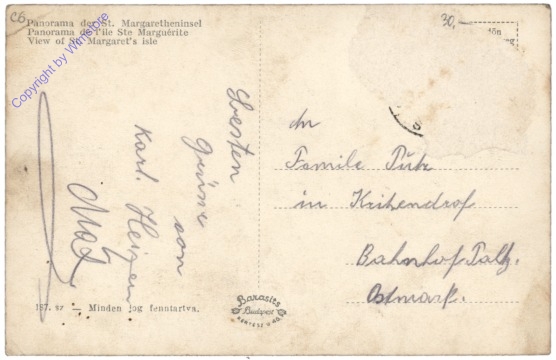 Panorama der St. Margaretheninsel
Panorama de l'ile Ste Marguérite
View of St. Margaret's isle
Copyright by WinStore
30.
Besten
Grüsse
von
Karl. Heizer
An
Familie Pütz
in Kritzendorf
Bahnhof
Ostmark.
187. sz — Minden jog fenntartva.
Barasits
Budapest